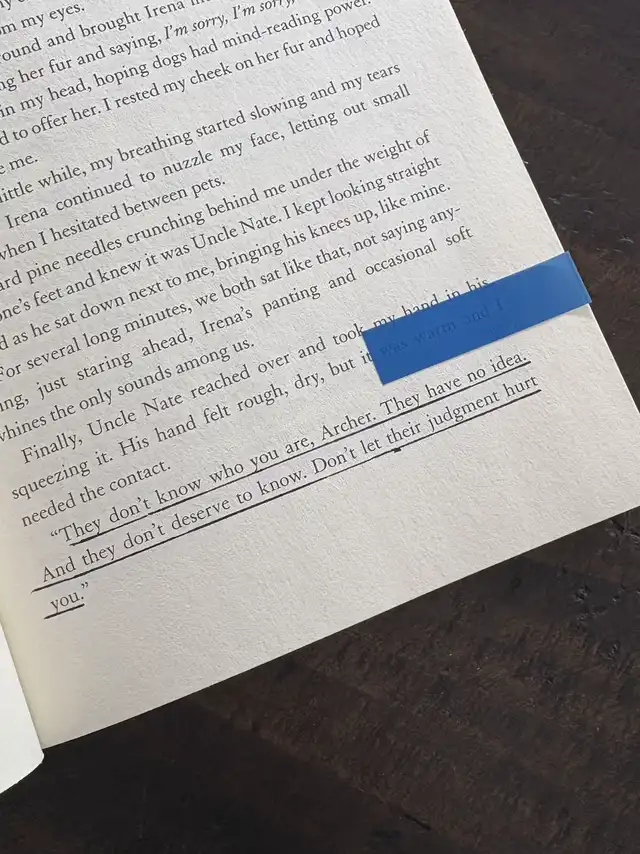 m my eyes.
ound and brought Irena
ng her fur and saying, I'm sorry, I'm sorry,
in my head, hoping dogs had mind-reading power.
d to offer her. I rested my cheek on her fur and hoped
e me.
little while, my breathing started slowing and my tears
Irena continued to nuzzle my face, letting out small
when I hesitated between pets.
ard pine needles crunching behind me under the weight of
one's feet and knew it was Uncle Nate. I kept looking straight
d as he sat down next to me, bringing his knees up, like mine.
For several long minutes, we both sat like that, not saying any-
ing, just staring ahead, Irena's panting and occasional soft
whines the only sounds among us.
Finally, Uncle Nate reached over and took my hand in his,
squeezing it. His hand felt rough, dry, but it was warm and I
needed the contact.
"They don't know who you are, Archer. They have no idea.
And they don't deserve to know. Don't let their judgment hurt
you."